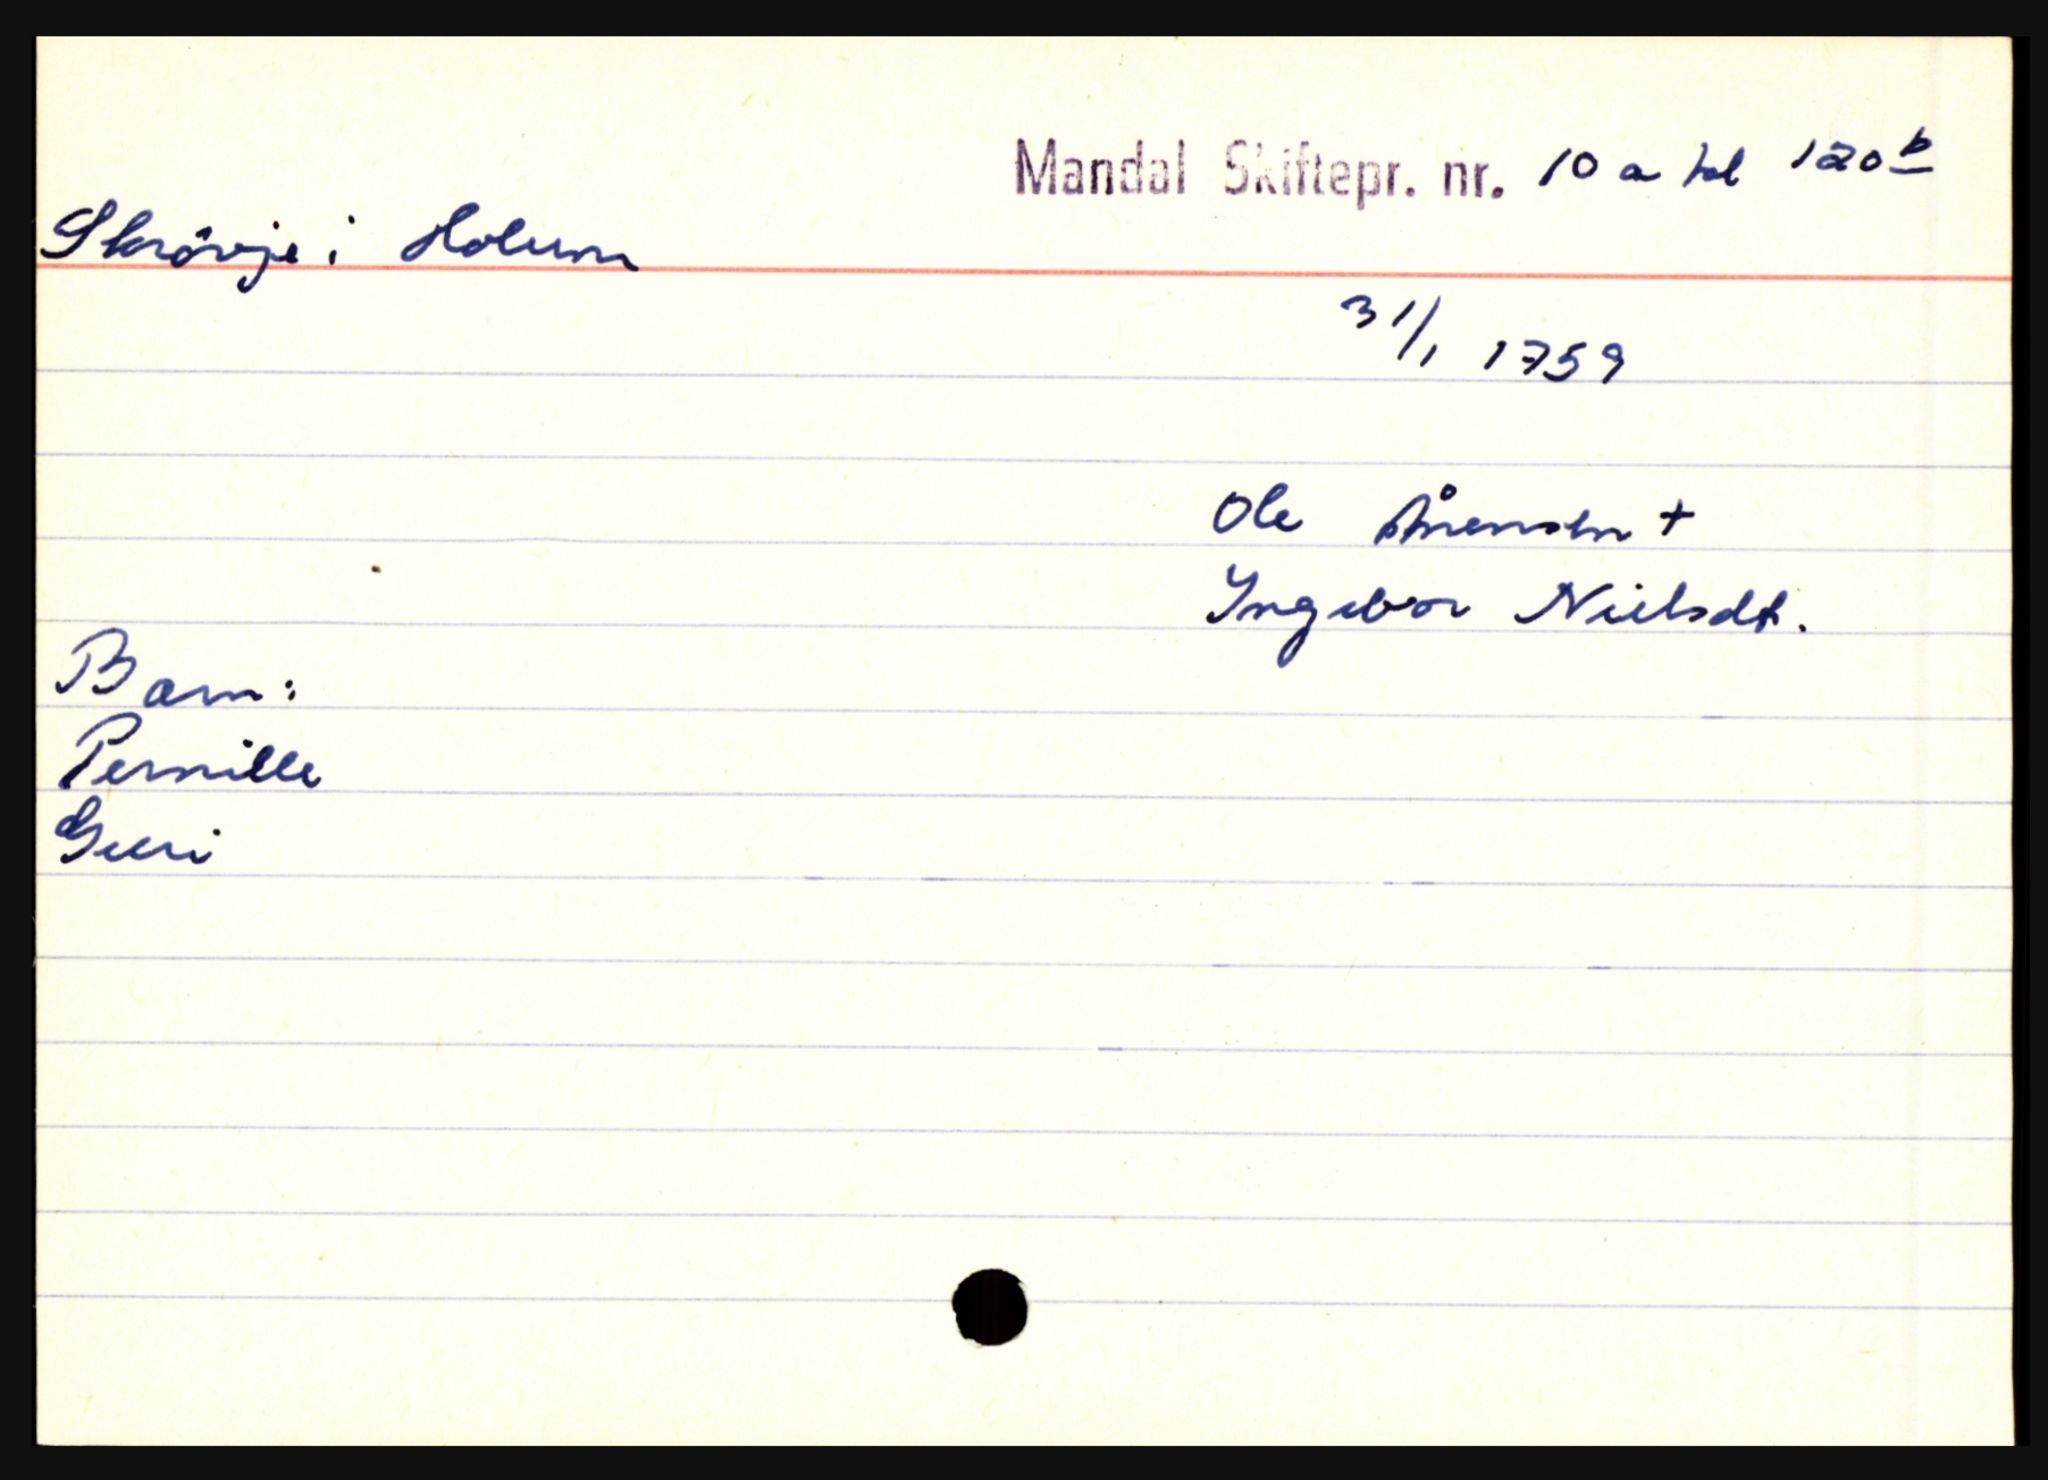 Mandal Skiftepr. nr. 10 a fol 120 b
Skrøvje i Holum
31/1 1759
Ole Ånensen +
Ingebor Nielsdt.
Barn:
Pernille
Guri